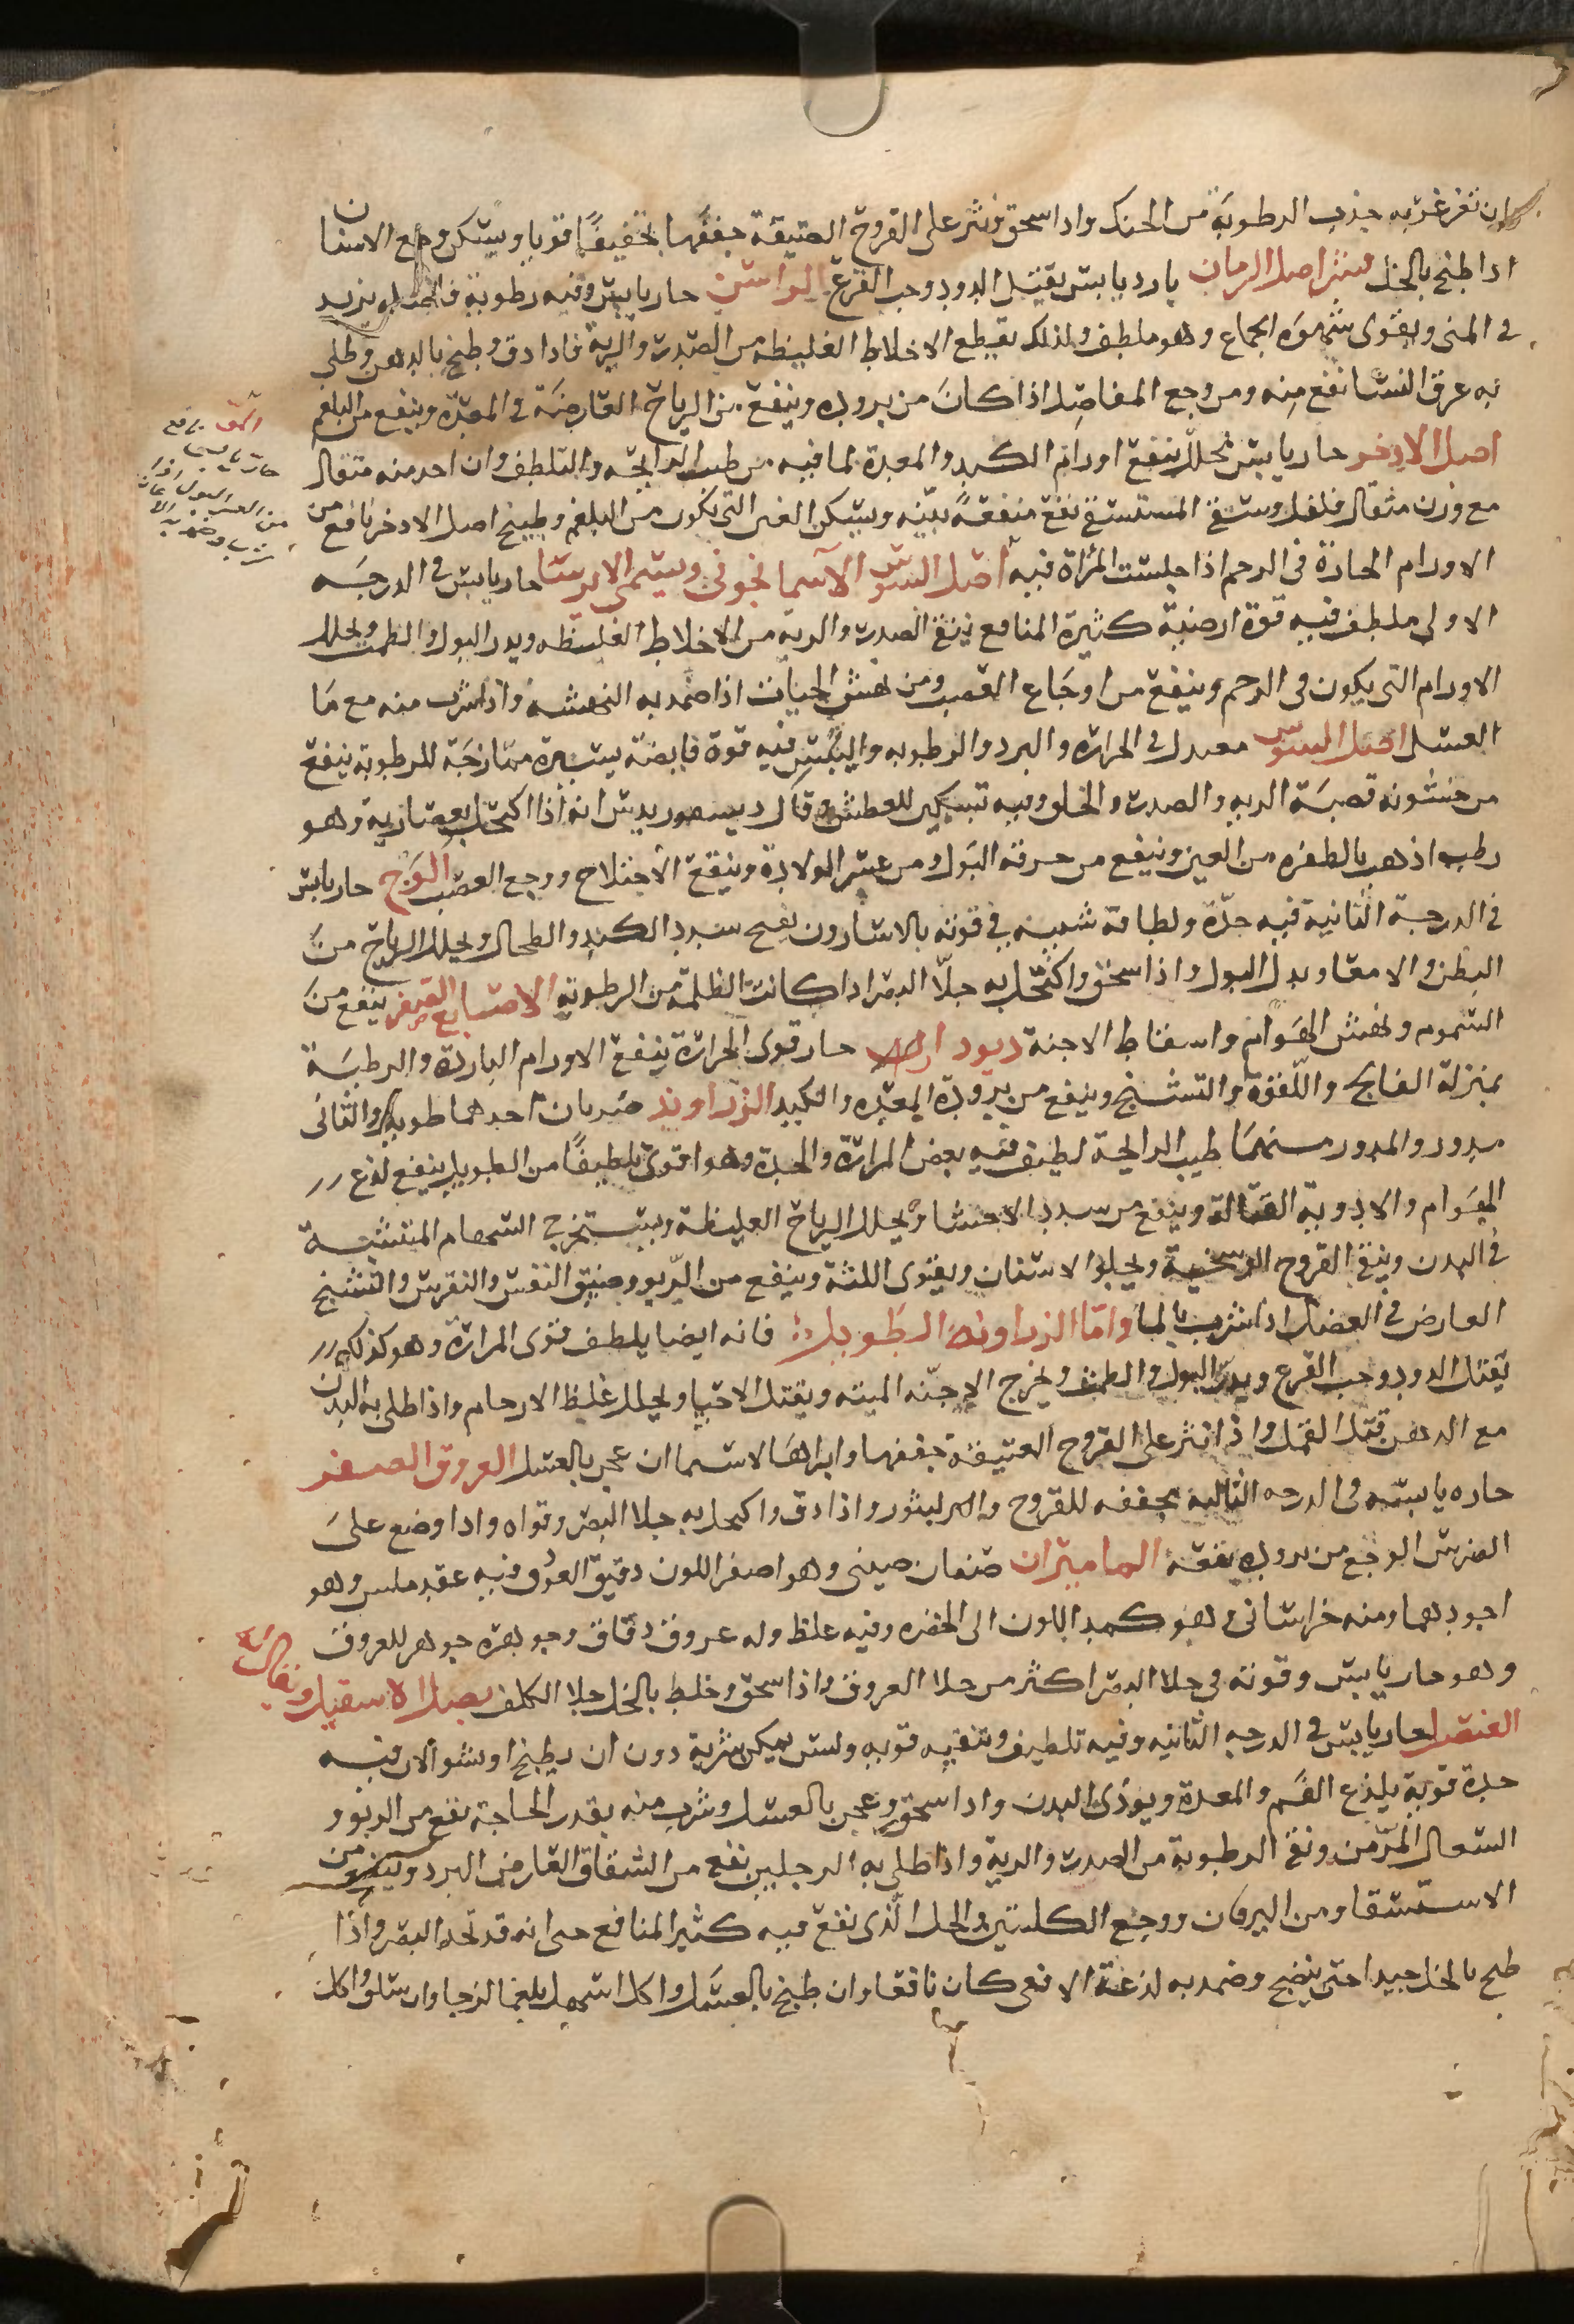 وان تغرغر به جذب الرطوبة من الحنك واذا سحق ونثر على القروح العتيقة جففها تجفيفا قويا ويسكن وجع الاسنان
اذا طبخ بالخل قشر اصل الرمان بارد يابس يقتل الدود وحب القرع الراسن حار يابس وفيه رطوبة فضلية يزيد
في المنى ويقوى شهوة الجماع وهو ملطف ولذلك يقطع الاخلاط الغليظه من الصدر والرية فاذا دق وطبخ بالدهن وطلى
به عرق النسا نفع منه ومن وجع المفاصل اذا كان من بروده وينفع من الرياح العارضة في المعدة وينفع من البلغم
اصل الاذخر حار يابس محلل ينفع اورام الكبد والمعدة لما فيه من طيب الرايحة والتلطف وان اخذ منه مثقال
مع وزن مثقال فلفل وسقى المستسقى نفع منفعة بينه ويسكن الغى التي تكون من البلغم وطبيخ اصل الاذخر نافع من
الاورام الحارة في الرحم اذا جلست المرأة فيه اصل السوسن الآسمانجونى ويسمى الايرسا حار يابس في الدرجه
الاولى ملطف فيه قوة ارضية كثيرة المنافع ينقى الصدر والرية من الاخلاط الغليظه ويدر البول والطمث ويحلل
الاورام التي يكون في الرحم وينفع من اوجاع العصب ومن نهش الحيات اذا ضمد به النهشه واذا شرب منه مع ما
العسل اصل السوس معتدل في الحرارة والبرد والرطوبه واليبس فيه قوة قابضة يسيرة ممازجة للرطوبة ينفع
من خشونه قصبة الريه والصدر والحلق وفيه تسكين للعطش وقال ديسقوريدس انه اذا اكتحل بعصارته وهو
رطب اذهب بالظفره من العين وينفع من حرقة البول ومن عسر الولادة وينفع الاختلاج ووجع العصب الوج حار يابس
في الدرجة الثانية فيه حدة ولطافة شبيه في قوته بالاسارون يفتح سدد الكبد والطحال ويحلل الرياح من
البطن والامعا ويدر البول واذا سحق واكتحل به جلا البصر اذا كانت الظلمة من الرطوبة الاصابع الصفر ينفع من
السموم ونهش الهوام واسقاط الاجنة ديودار حار قوى الحرارة ينفع الاورام الباردة والرطبة
بمنزلة الفالج واللقوة والتشنج وينفع من برودة المعده والكبد الزراوند ضربان احدهما طويل والثانى
مدور والمدور منهما طيب الرايحة لطيف فيه بعض المرارة والحدة وهو اقوى تلطيفا من الطويل ينفع لذع
الهوام والادوية القتالة وينفع من سدد الاحشا ويحلل الرياح الغليظة ويستخرج السهام المنتشبة
في البدن وينقى القروح الوسخة ويجلو الاسنان ويقوى اللثة وينفع من الربو وضيق النفس والنقرس والتشنج
العارض في العضل اذا شرب بالما واما الزراوند الطويل فانه ايضا يلطف قوى المرارة وهو كذلك
يقتل الدود وحب القرع ويدر البول والطمث ويخرج الاجنه الميته ويقتل الاحيا ويحلل غلظ الارحام واذا طلى به البدن
مع الدهن قتل القمل واذا نثر على القروح العتيقة جففها وابراها لاسيما ان عجن بالعسل العروق الصفر
حاره يابسه في الدرجه الثالثة مجففه للقروح والبثور واذا دق واكتحل به جلا البصر وقواه واذا وضع على
الضرس الوجع من بروده نفعه الماميران صنفان صينى وهو اصفر اللون دقيق العروق فيه عقد ملس وهو
اجودهما ومنه خراسانى وهو كمد اللون الى الخضره وفيه غلظ وله عروق دقاق وجوهره جوهر للعروق
وهو حار يابس وقوته في جلا البصر اكثر من جلا العروق واذا سحق وخلط بالخل جلا الكلف بصل الاسقيل ويقال له
العنصل حار يابس في الدرجه الثانيه وفيه تلطيف وتنقيه قويه وليس يمكن شربه دون ان يطبخ او يشوا لان فيه
حدة قوية يلذع الفم والمعدة ويوذى البدن واذا سحق وعجن بالعسل وشرب منه بقدر الحاجة نفع من الربو و
السعال المزمن ونقى الرطوبة من الصدر والرية واذا طلى به الرجلين نفع من الشقاق العارض البرد وينفع من
الاستسقا ومن اليرقان ووجع الكليتين والخل الذى نقع فيه كثير المنافع حتى انه قد يحد البصر واذا
طبخ بالخل جيدا حتى ينضج وضمد به لذعة الافعى كان نافعا وان طبخ بالعسل واكل اسهل بلغما لزجا وان سلق واكل